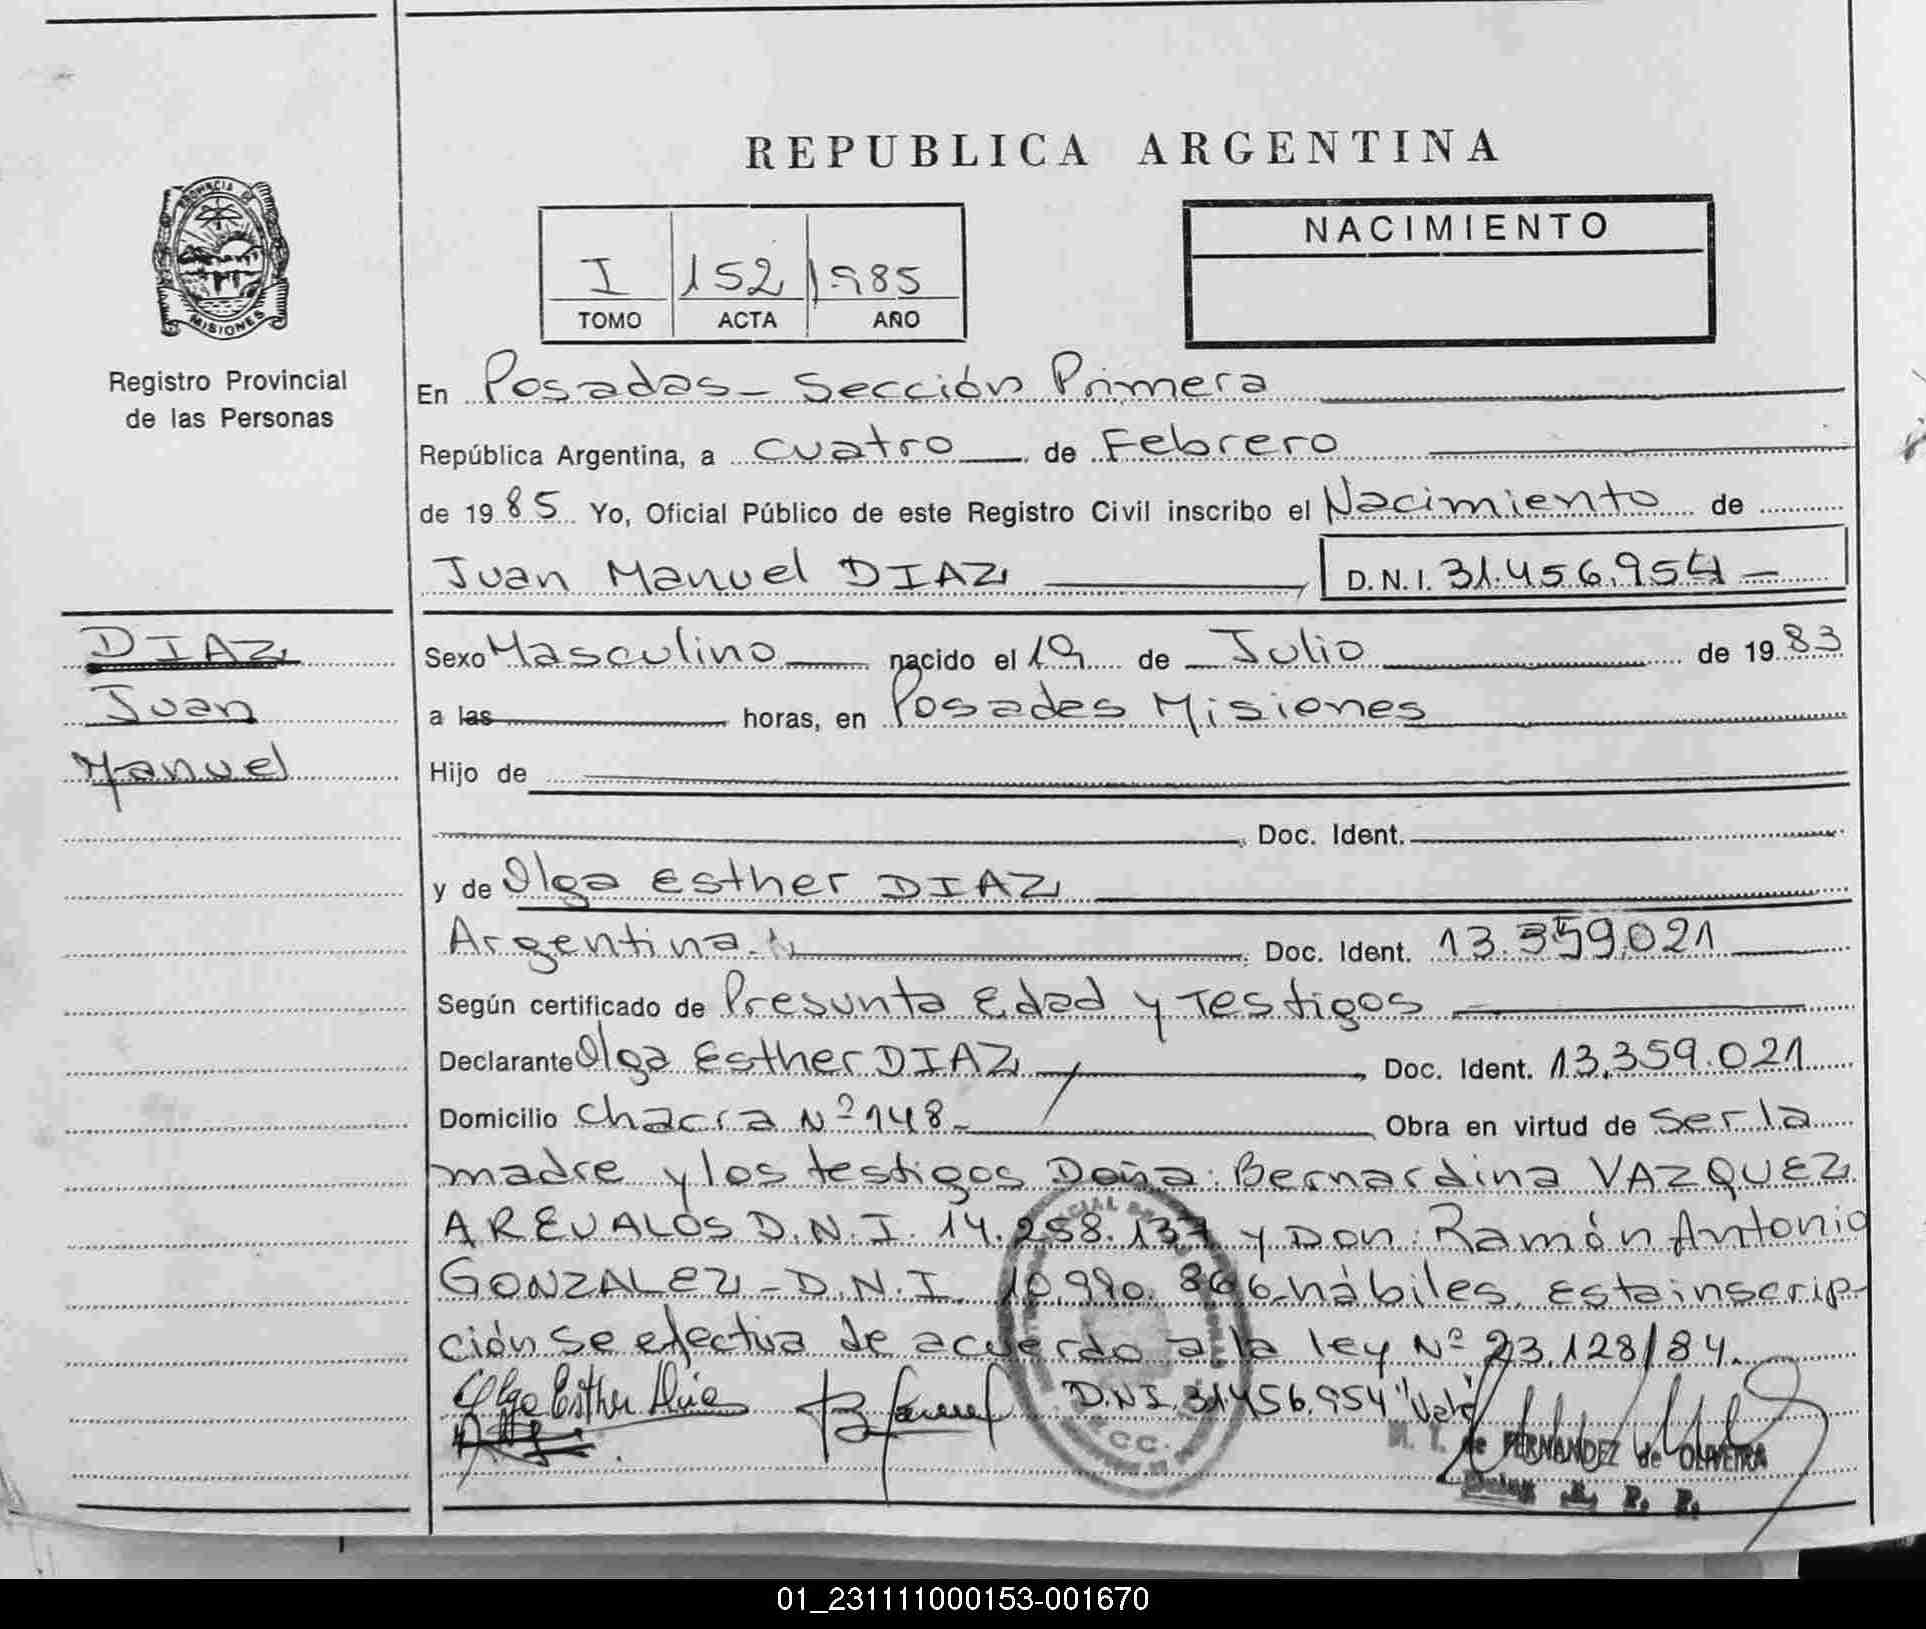 REPUBLICA ARGENTINA
PROVINCIA DE
MISIONES
Registro Provincial
de las Personas
I 152 1985
TOMO ACTA AÑO
NACIMIENTO
En Posadas - Sección Primera
República Argentina, a cuatro de Febrero
de 1985. Yo, Oficial Público de este Registro Civil inscribo el Nacimiento de
Juan Manuel DIAZ D.N.I. 31.456.954 -
DIAZ
Juan
Manuel
Sexo Masculino nacido el 19 de Julio de 1983
a las horas, en Posadas Misiones
Hijo de
Doc. Ident.
y de Olga Esther DIAZ
Argentina. Doc. Ident. 13.359.021
Según certificado de Presunta Edad y Testigos
Declarante Olga Esther DIAZ Doc. Ident. 13.359.021
Domicilio Chacra Nº 148 - Obra en virtud de ser la
madre y los testigos Doña: Bernardina VAZQUEZ
AREVALOS D.N.I. 14.258.137 y Don: Ramón Antonio
GONZALEZ - D.N.I. 10.990.866 hábiles. Esta inscrip-
ción se efectiva de acuerdo a la ley Nº 23.128/84.
Olga Esther Diaz D.N.I. 31.456.954 "Vale"
M. I. de FERNANDEZ de OLIVEIRA
R. P. P.
01_231111000153-001670